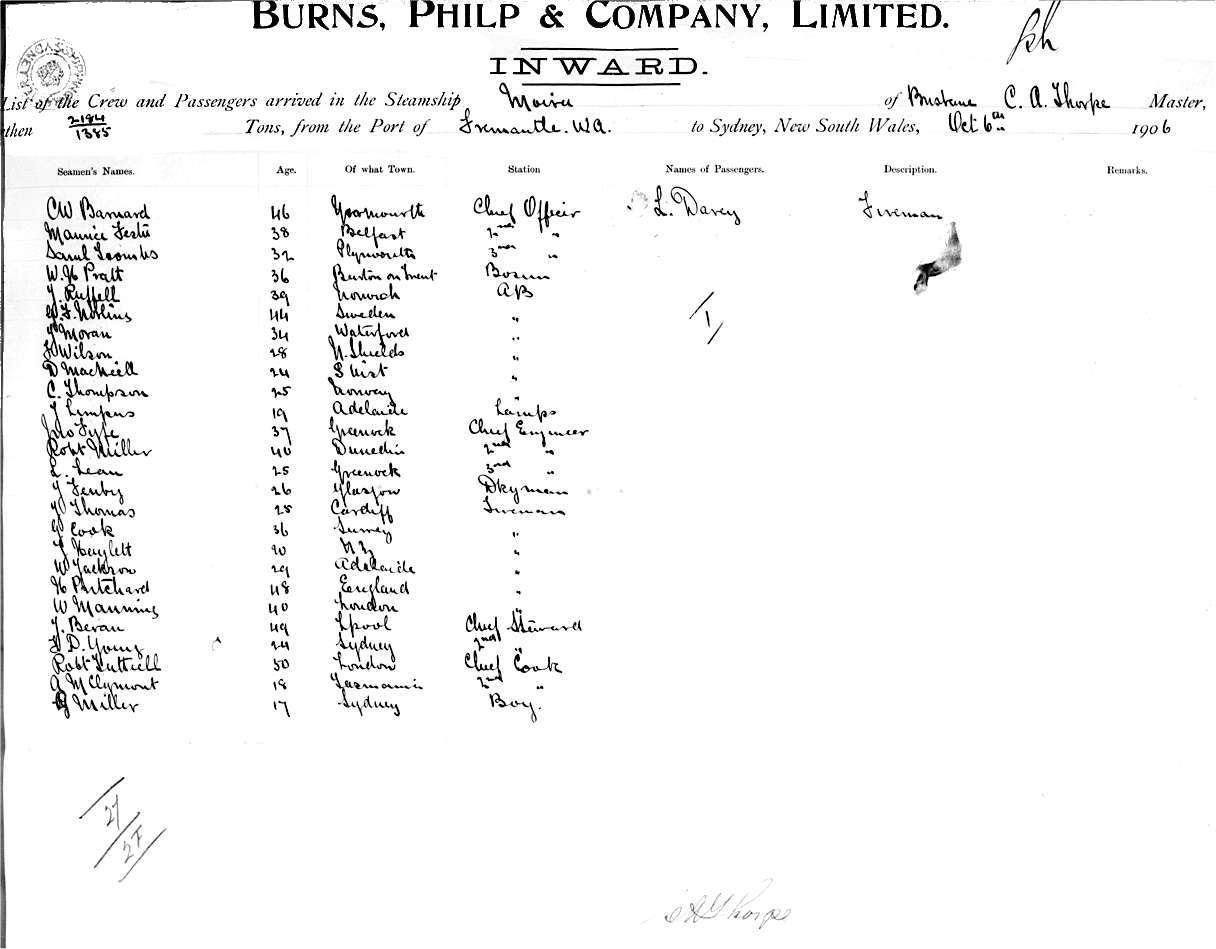 BURNS, PHILP & COMPANY, LIMITED.
INWARD.
List of the Crew and Passengers arrived in the Steamship Moira of Brisbane C. A. Thorpe Master,
then 2184 1385 Tons, from the Port of Fremantle. WA. to Sydney, New South Wales, Oct 6th 1906
Seamen's Names. Age. Of what Town. Station Names of Passengers. Description. Remarks.
CW Barnard 46 Yarmouth Chief Officer L. Darcy Fireman
Maurice 38 Belfast 2nd "
Saml Toombs 32 Plymouth 3rd "
W. H Pratt 36 Burton on Trent Bosun
J. Ruffell 39 Norwich AB
Norling 44 Sweden "
Moran 34 Waterford "
Wilson 28 N. Shields "
D MacNeill 24 S Uist "
C. Thompson 25 Norway "
J Limpus 19 Adelaide Lamps
Jno Fyfe 37 Greenock Chief Engineer
Robt Miller 40 Dunedin 2nd "
L. Lean 25 Greenock 3rd "
J Fenby 26 Glasgow Dkyman
Thomas 25 Cardiff Fireman
Cook 36 Surrey "
Haylett 20 N Z "
W Jackson 29 Adelaide "
H Pritchard 48 England "
W Manning 40 London "
J. Bevan 49 Lpool Chief Steward
D. Young 24 Sydney 2nd "
Robt Luttrell 50 London Chief Cook
A McClymont 18 Tasmania 2nd "
Miller 17 Sydney Boy.
1
27
27
C A Thorpe